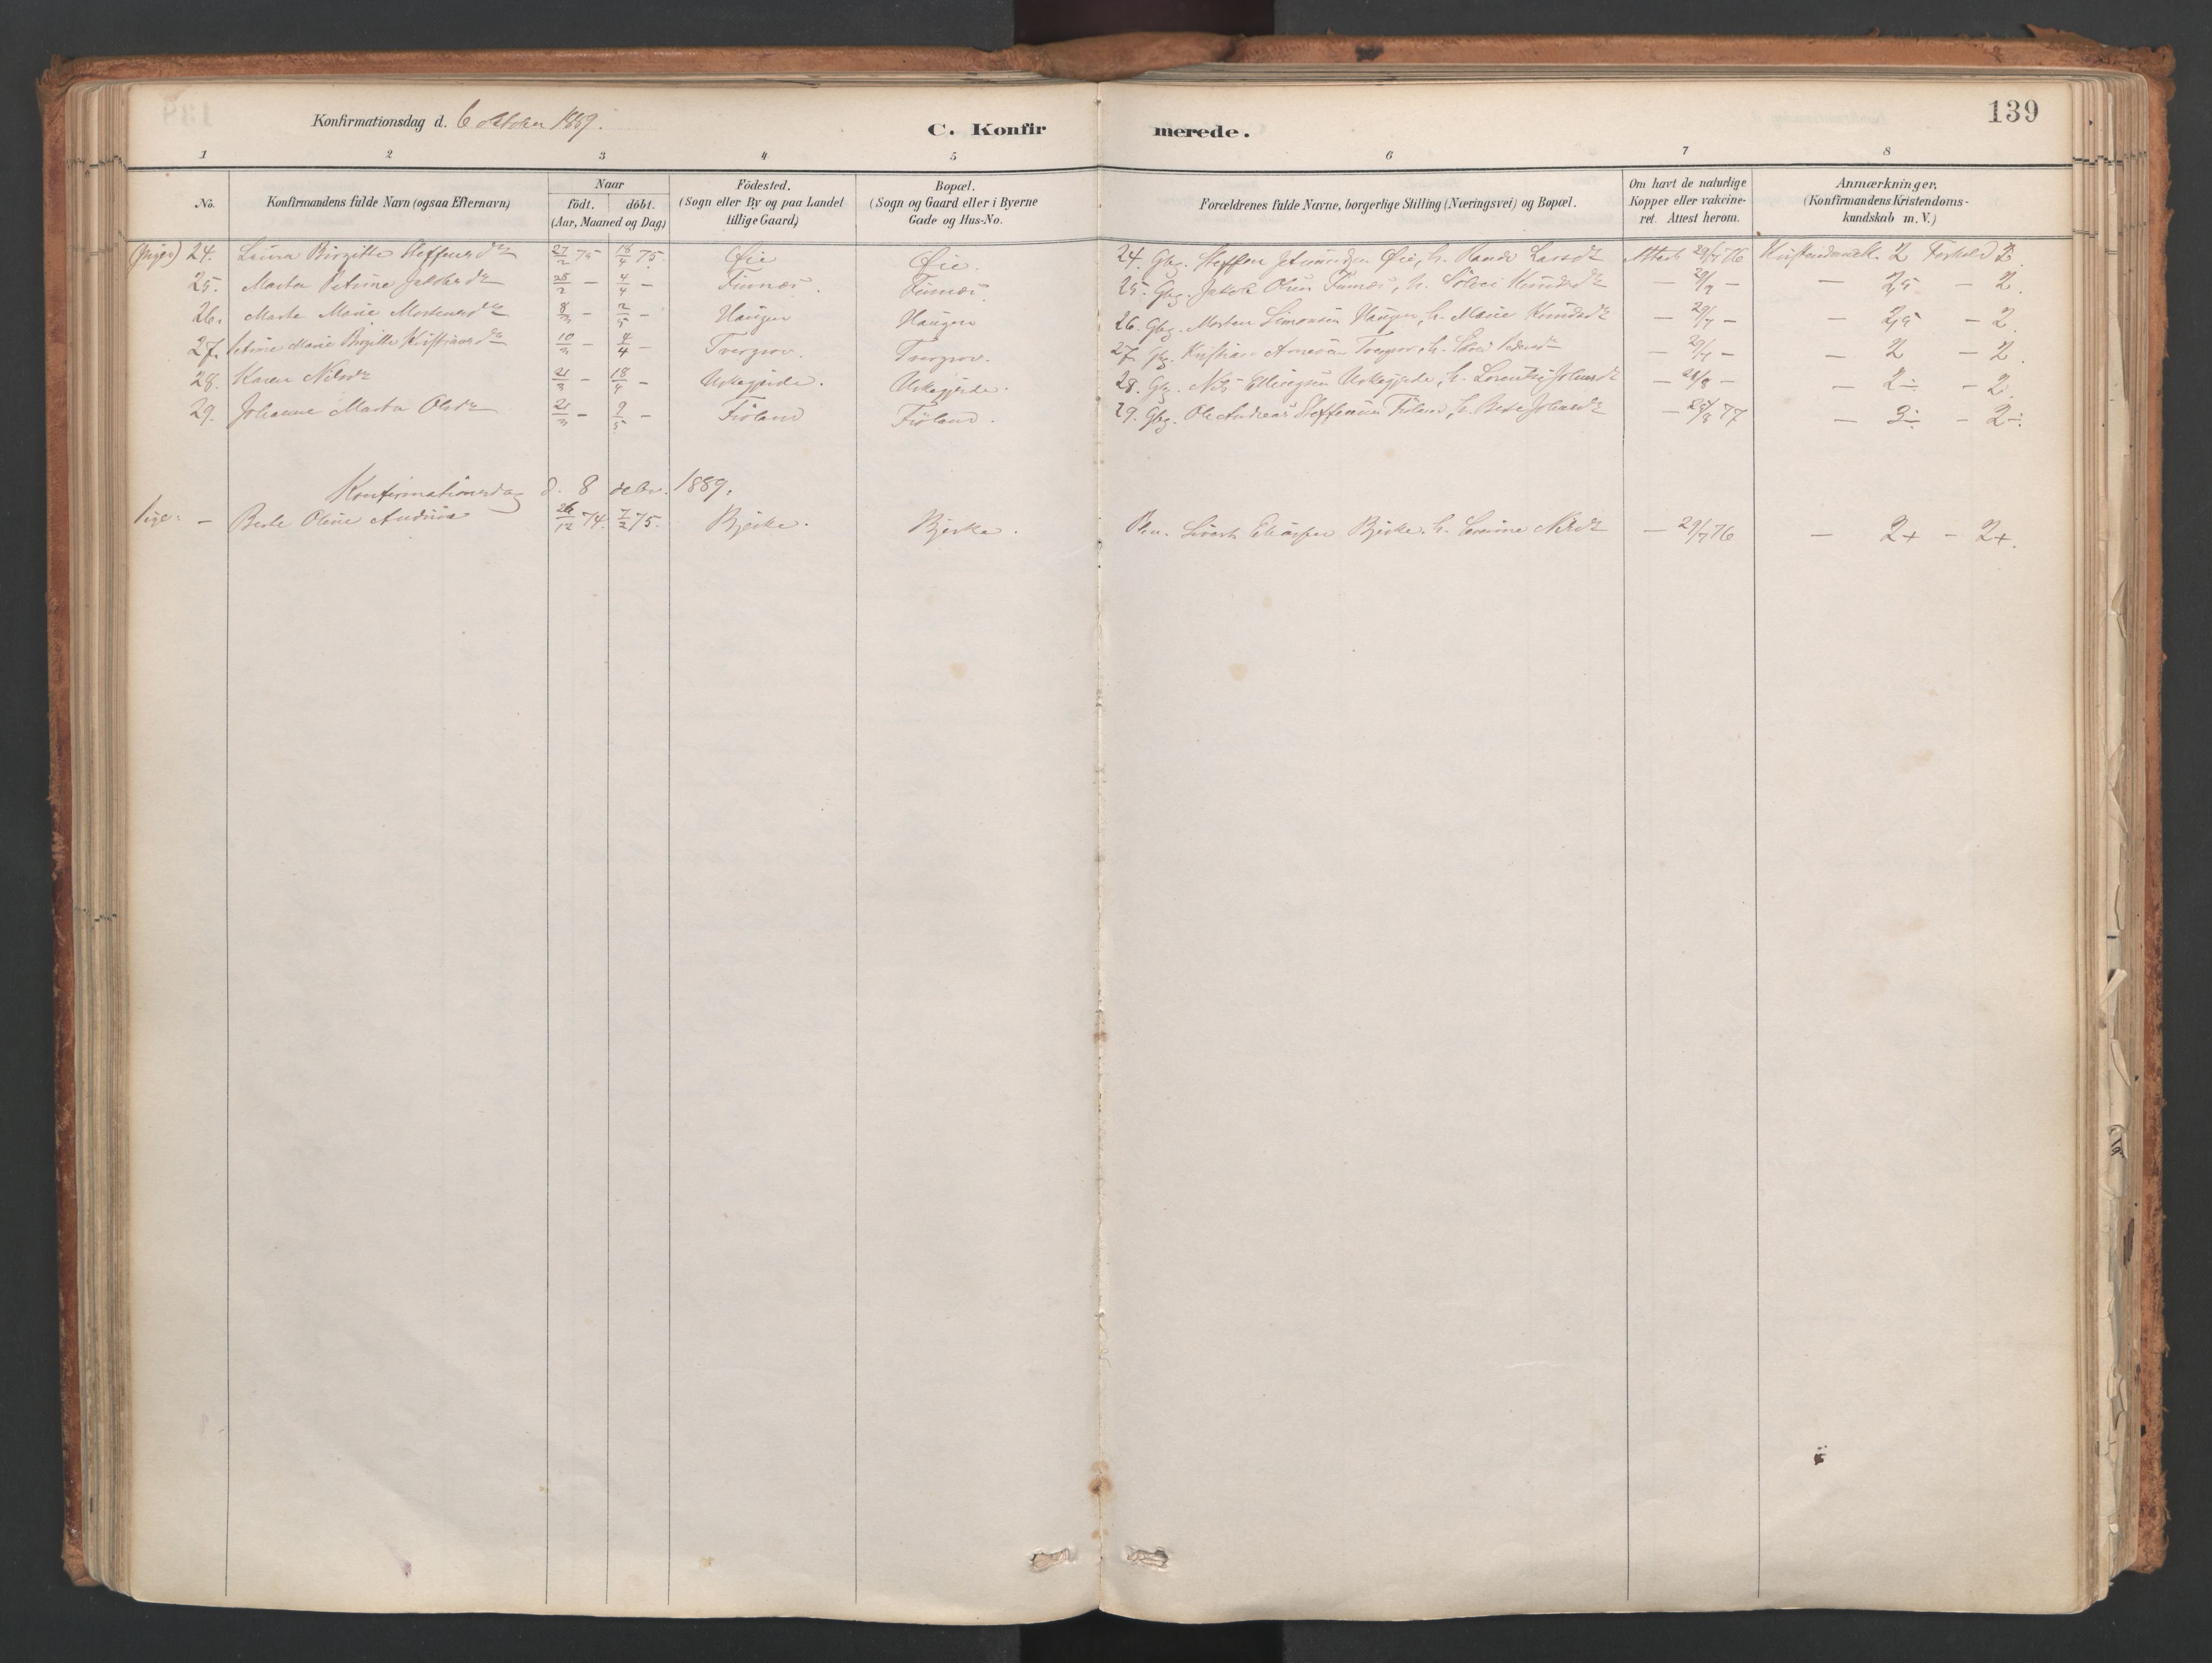 139
Konfirmationsdag d. 6 oktober 1889.
C. Konfirmerede.
1 2 3 4 5 6 7 8
No.
Konfirmandens fulde Navn (ogsaa Efternavn)
Naar
födt. döbt.
(Aar, Maaned og Dag)
Födested.
(Sogn eller By og paa Landet
tillige Gaard)
Bopæl.
(Sogn og Gaard eller i Byerne
Gade og Hus-No.
Forældrenes fulde Navne, borgerlige Stilling (Næringsvei) og Bopæl.
Om havt de naturlige
Kopper eller vakcine-
ret. Attest herom.
Anmærkninger,
(Konfirmandens Kristendoms-
kundskab m. V.)
(Piger) 24. Laura Birgitte Steffensdtr 27/2 75 18/4 75. Øie Øie. 24. Gbg. Steffen Jetmundsen Øie, h. Rande Larsdtr Attest 29/7 76 Kristendomsk. 2 Forhold 2.
25. Marta Petrine Jakobsdtr 28/2 — 4/4 — Finnæs. Finnæs. 25. Gbg. Jakob Olsen Finnæs, h. Sölvei Knudsdtr — 29/7 — — 2,5 — 2.
26. Marte Marie Mortensdtr 8/3 — 2/5 — Haugen Haugen 26. Gbg. Morten Simonsen Haugen, h. Marie Knudsdtr — 29/7 — — 2,5 — 2.
27. Petrine Marie Birgitte Kristiansdtr 10/3 — 4/4 — Tvergrov. Tvergrov. 27. Gbg. Kristian Arnesen Tvergrov, h. Pedersdtr — 29/7 — — 2 — 2.
28. Karen Nilsdtr 21/3 — 18/4 — Urkegjerde. Urkegjerde. 28. Gbg. Nils Ellingsen Urkegjerde, h. Lorentse Johnsdtr — 28/8 — — 2÷ — 2.
29. Johanne Marta Olsdtr 21/3 — 9/5 — Fröland Fröland. 29. Gbg. Ole Andreas Steffensen Fröland, h. Johansdtr — 28/8 77 — 3÷ — 2÷.
Konfirmationsdag d. 8 decbr. 1889.
Pige: — Berte Oline Andrea 26/12 74. 7/2 75. Bjerke. Bjerke. Sivert Eliassen Bjerke, h. Nilsdtr — 29/7 76 — 2+ — 2+.